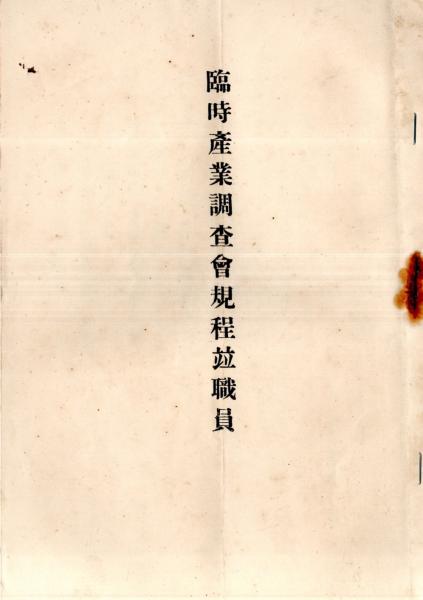 臨時產業調查會規程竝職員